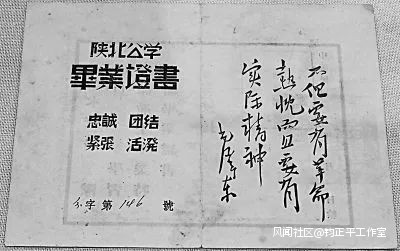 陕北公学
畢業證書
忠誠 团结
緊張 活潑
字第 146 號
不但要有革命
热忱而且要有
实际精神
毛澤东
风闻社区@钧正平工作室